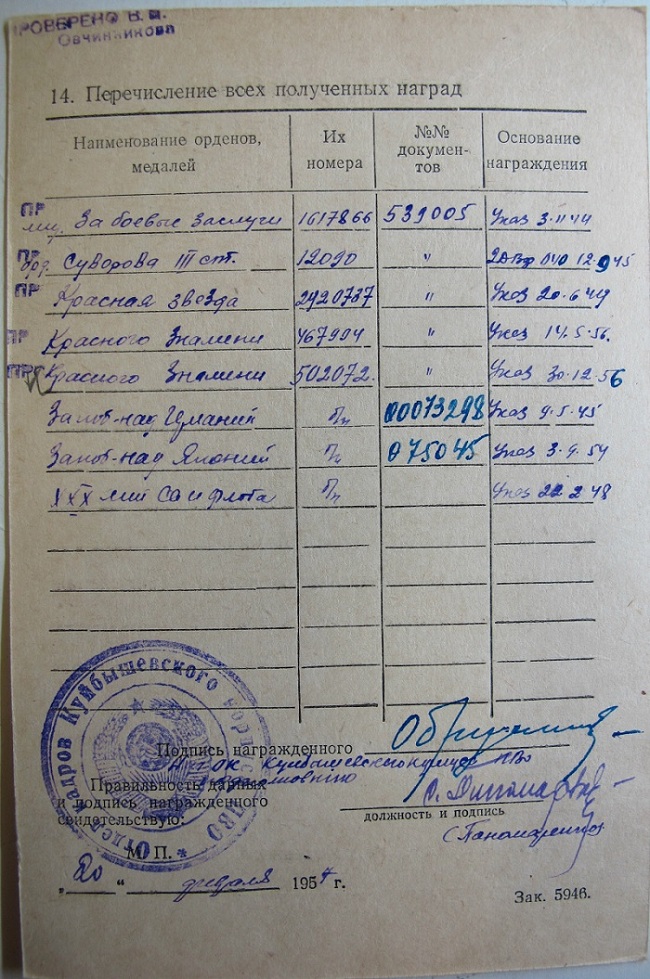 ПРОВЕРЕНО В.И.
Овчинникова
14. Перечисление всех полученных наград
Наименование орденов, медалей
Их номера
№№ документов
Основание награждения
ПР мед. За боевые заслуги 1617866 539005 Указ 3.11.44
ПР орд. Суворова III ст. 12090 " 12.9.45
ПР Красная звезда 2920737 " Указ 20.6.49
ПР Красного Знамени 467994 " Указ 14.5.56.
ПР Красного Знамени 502072. " Указ 30.12.56
За поб. над Германией б/н 00073298 Указ 9.5.45
За поб. над Японией б/н 075045 Указ
XXX лет СА и флота б/н Указ 22.2.48
Отдел кадров Куйбышевского корпуса ПВО
Подпись награжденного
Нач ОК Куйбышевского корпуса ПВО
Правильность данных
и подпись награжденного
свидетельствую:
должность и подпись
М. П.
(Пономаренко)
„20" февраля 1957 г.
Зак. 5946.